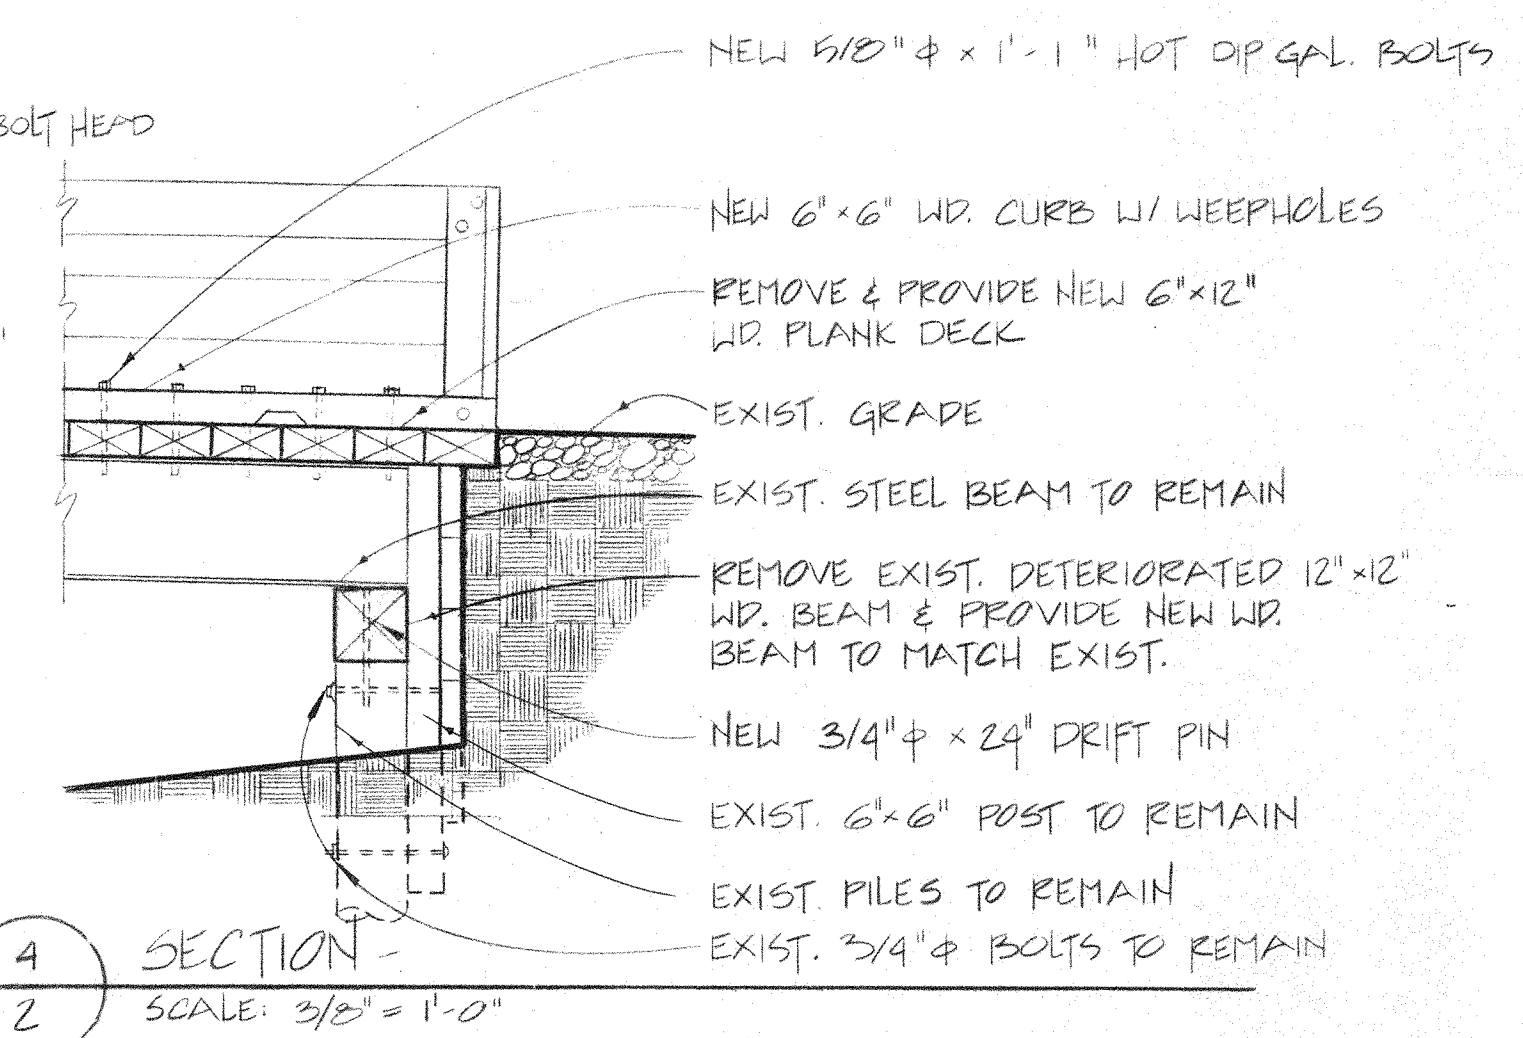 NEW 5/8"⌀ x 1'-1" HOT DIP GAL. BOLTS
BOLT HEAD
NEW 6"x6" WD. CURB W/ WEEPHOLES
REMOVE & PROVIDE NEW 6"x12"
WD. PLANK DECK
EXIST. GRADE
EXIST. STEEL BEAM TO REMAIN
REMOVE EXIST. DETERIORATED 12"x12"
WD. BEAM & PROVIDE NEW WD.
BEAM TO MATCH EXIST.
NEW 3/4"⌀ x 24" DRIFT PIN
EXIST. 6"x6" POST TO REMAIN
EXIST. PILES TO REMAIN
EXIST. 3/4"⌀ BOLTS TO REMAIN
4
SECTION -
2
SCALE: 3/8" = 1'-0"